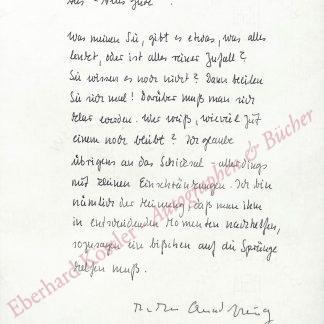 aus "Alles Gute".
Was meinen Sie, gibt es etwas, was alles
lenkt, oder ist alles reiner Zufall?
Sie wissen es noch nicht? Dann beeilen
Sie sich mal! Darüber muß man sich
klar werden. Wer weiß, wieviel Zeit
einem noch bleibt? Ich glaube
übrigens an das Schicksal - allerdings
mit kleinen Einschränkungen. Ich bin
nämlich der Meinung, daß man ihm
in entscheidenden Momenten nachhelfen,
sozusagen ein bißchen auf die Sprünge
helfen muß.
Eberhard Köstler - Autographen & Bücher